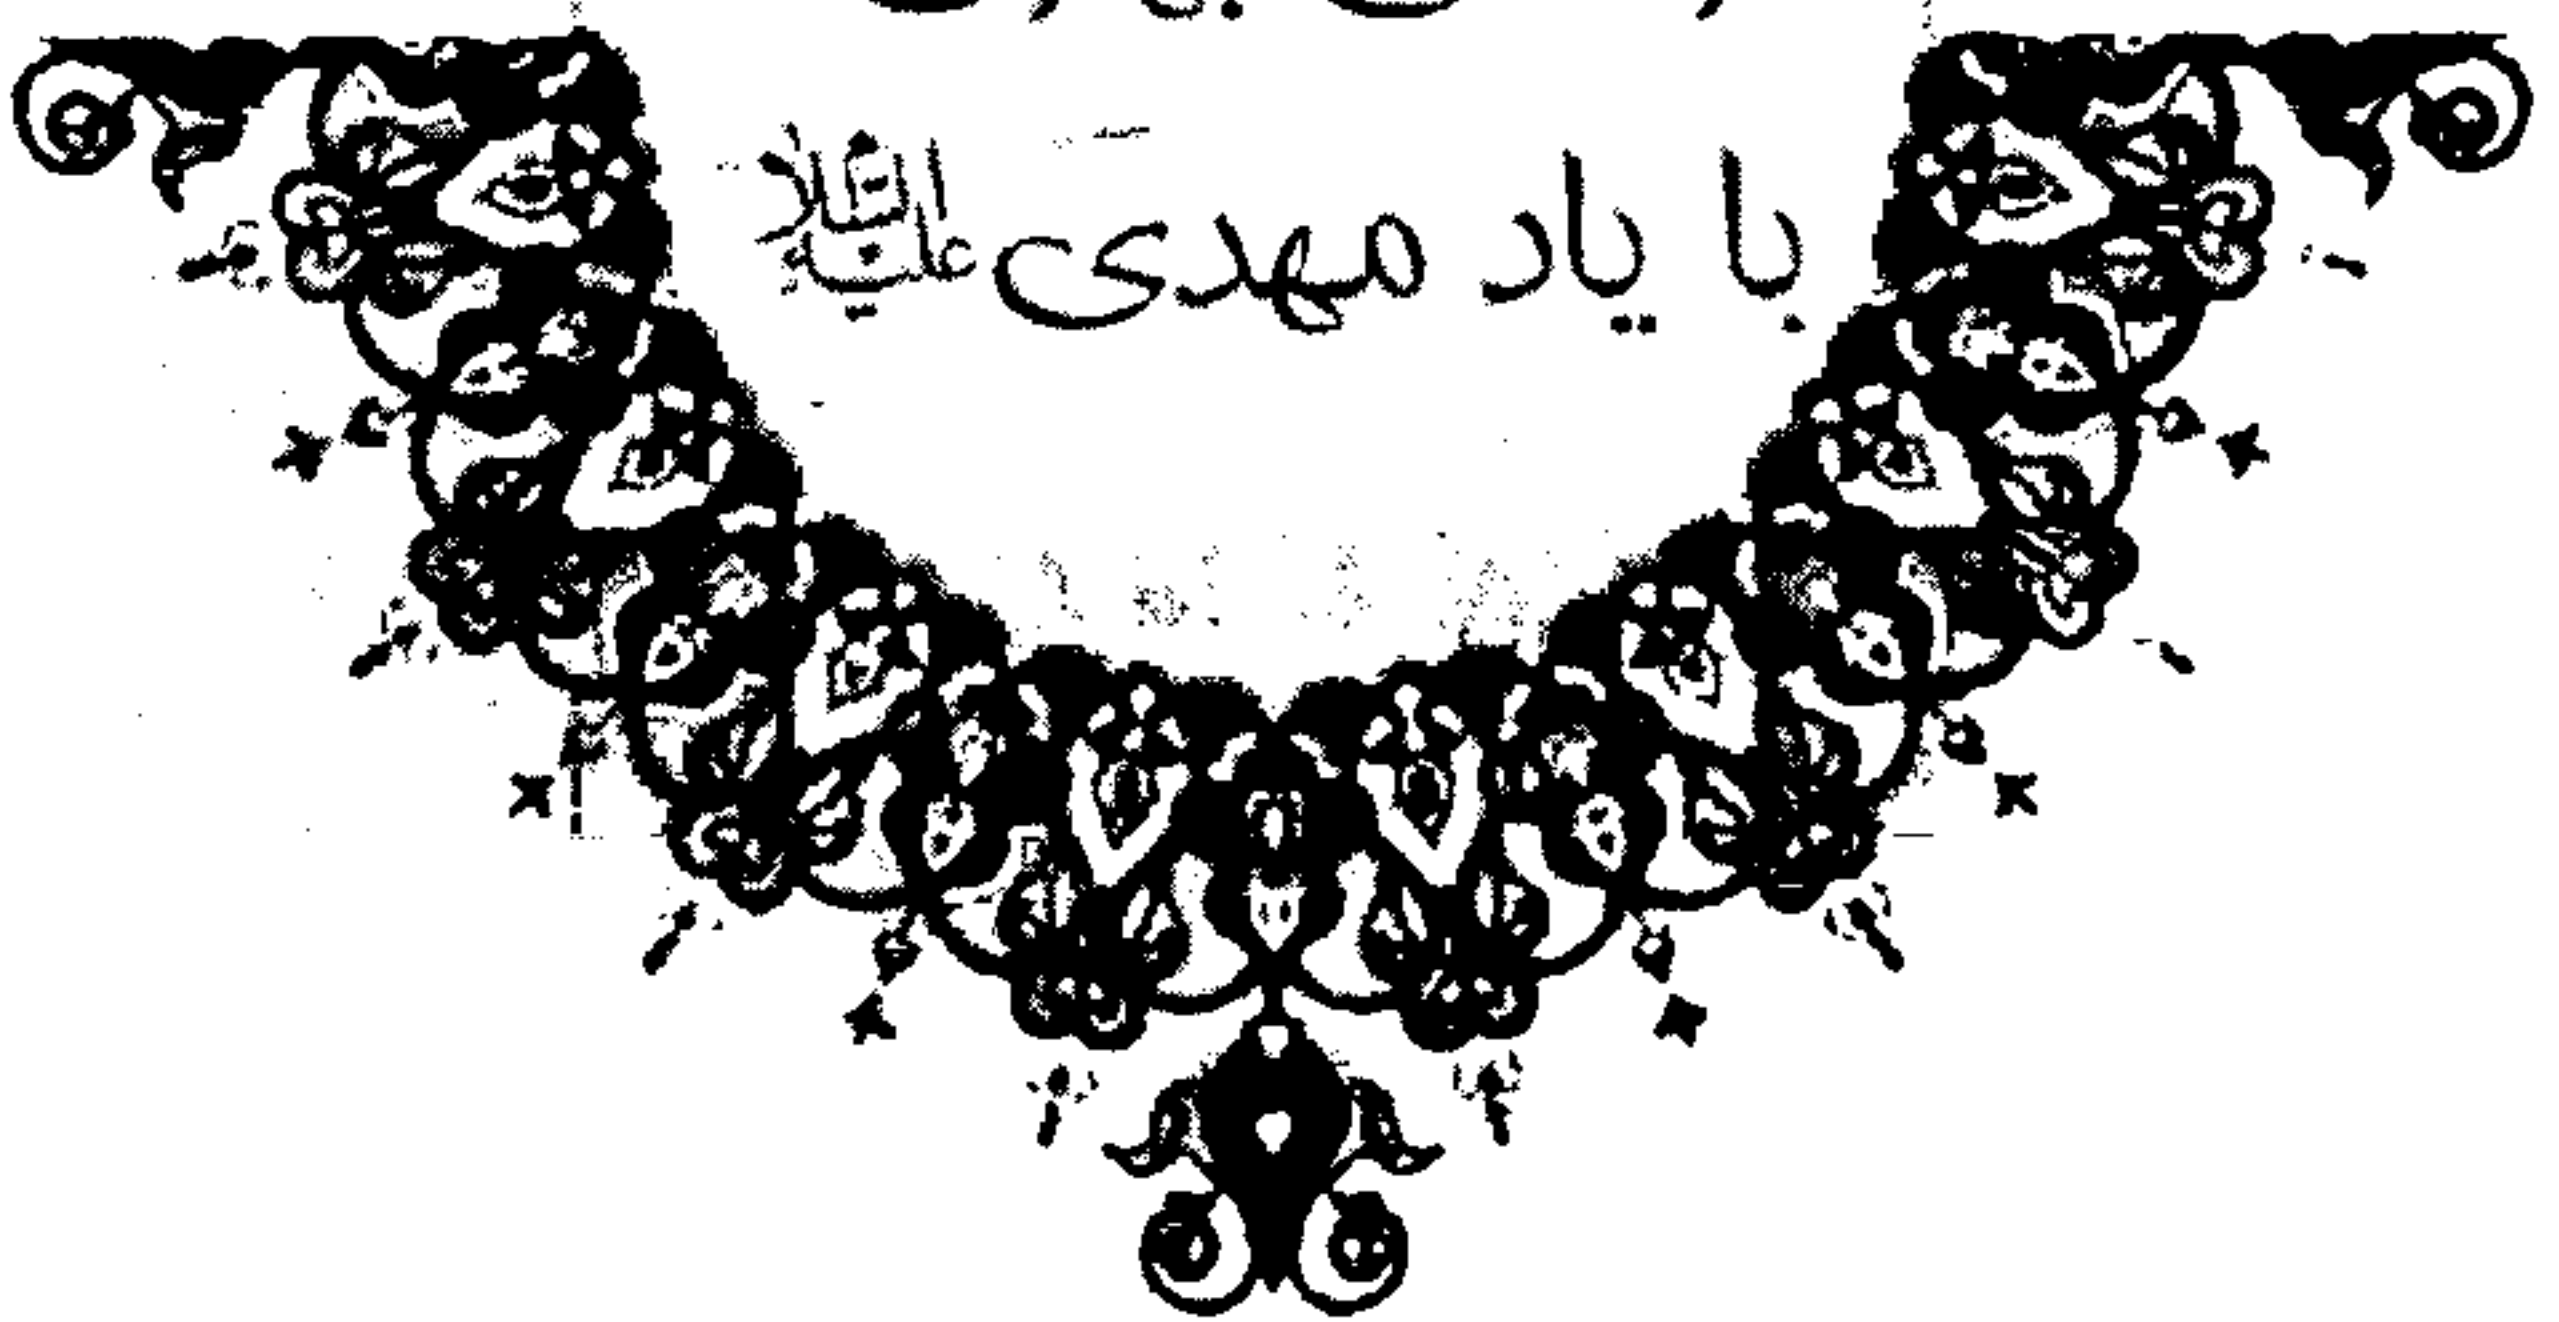 با یاد مهدی علیه‌السلام